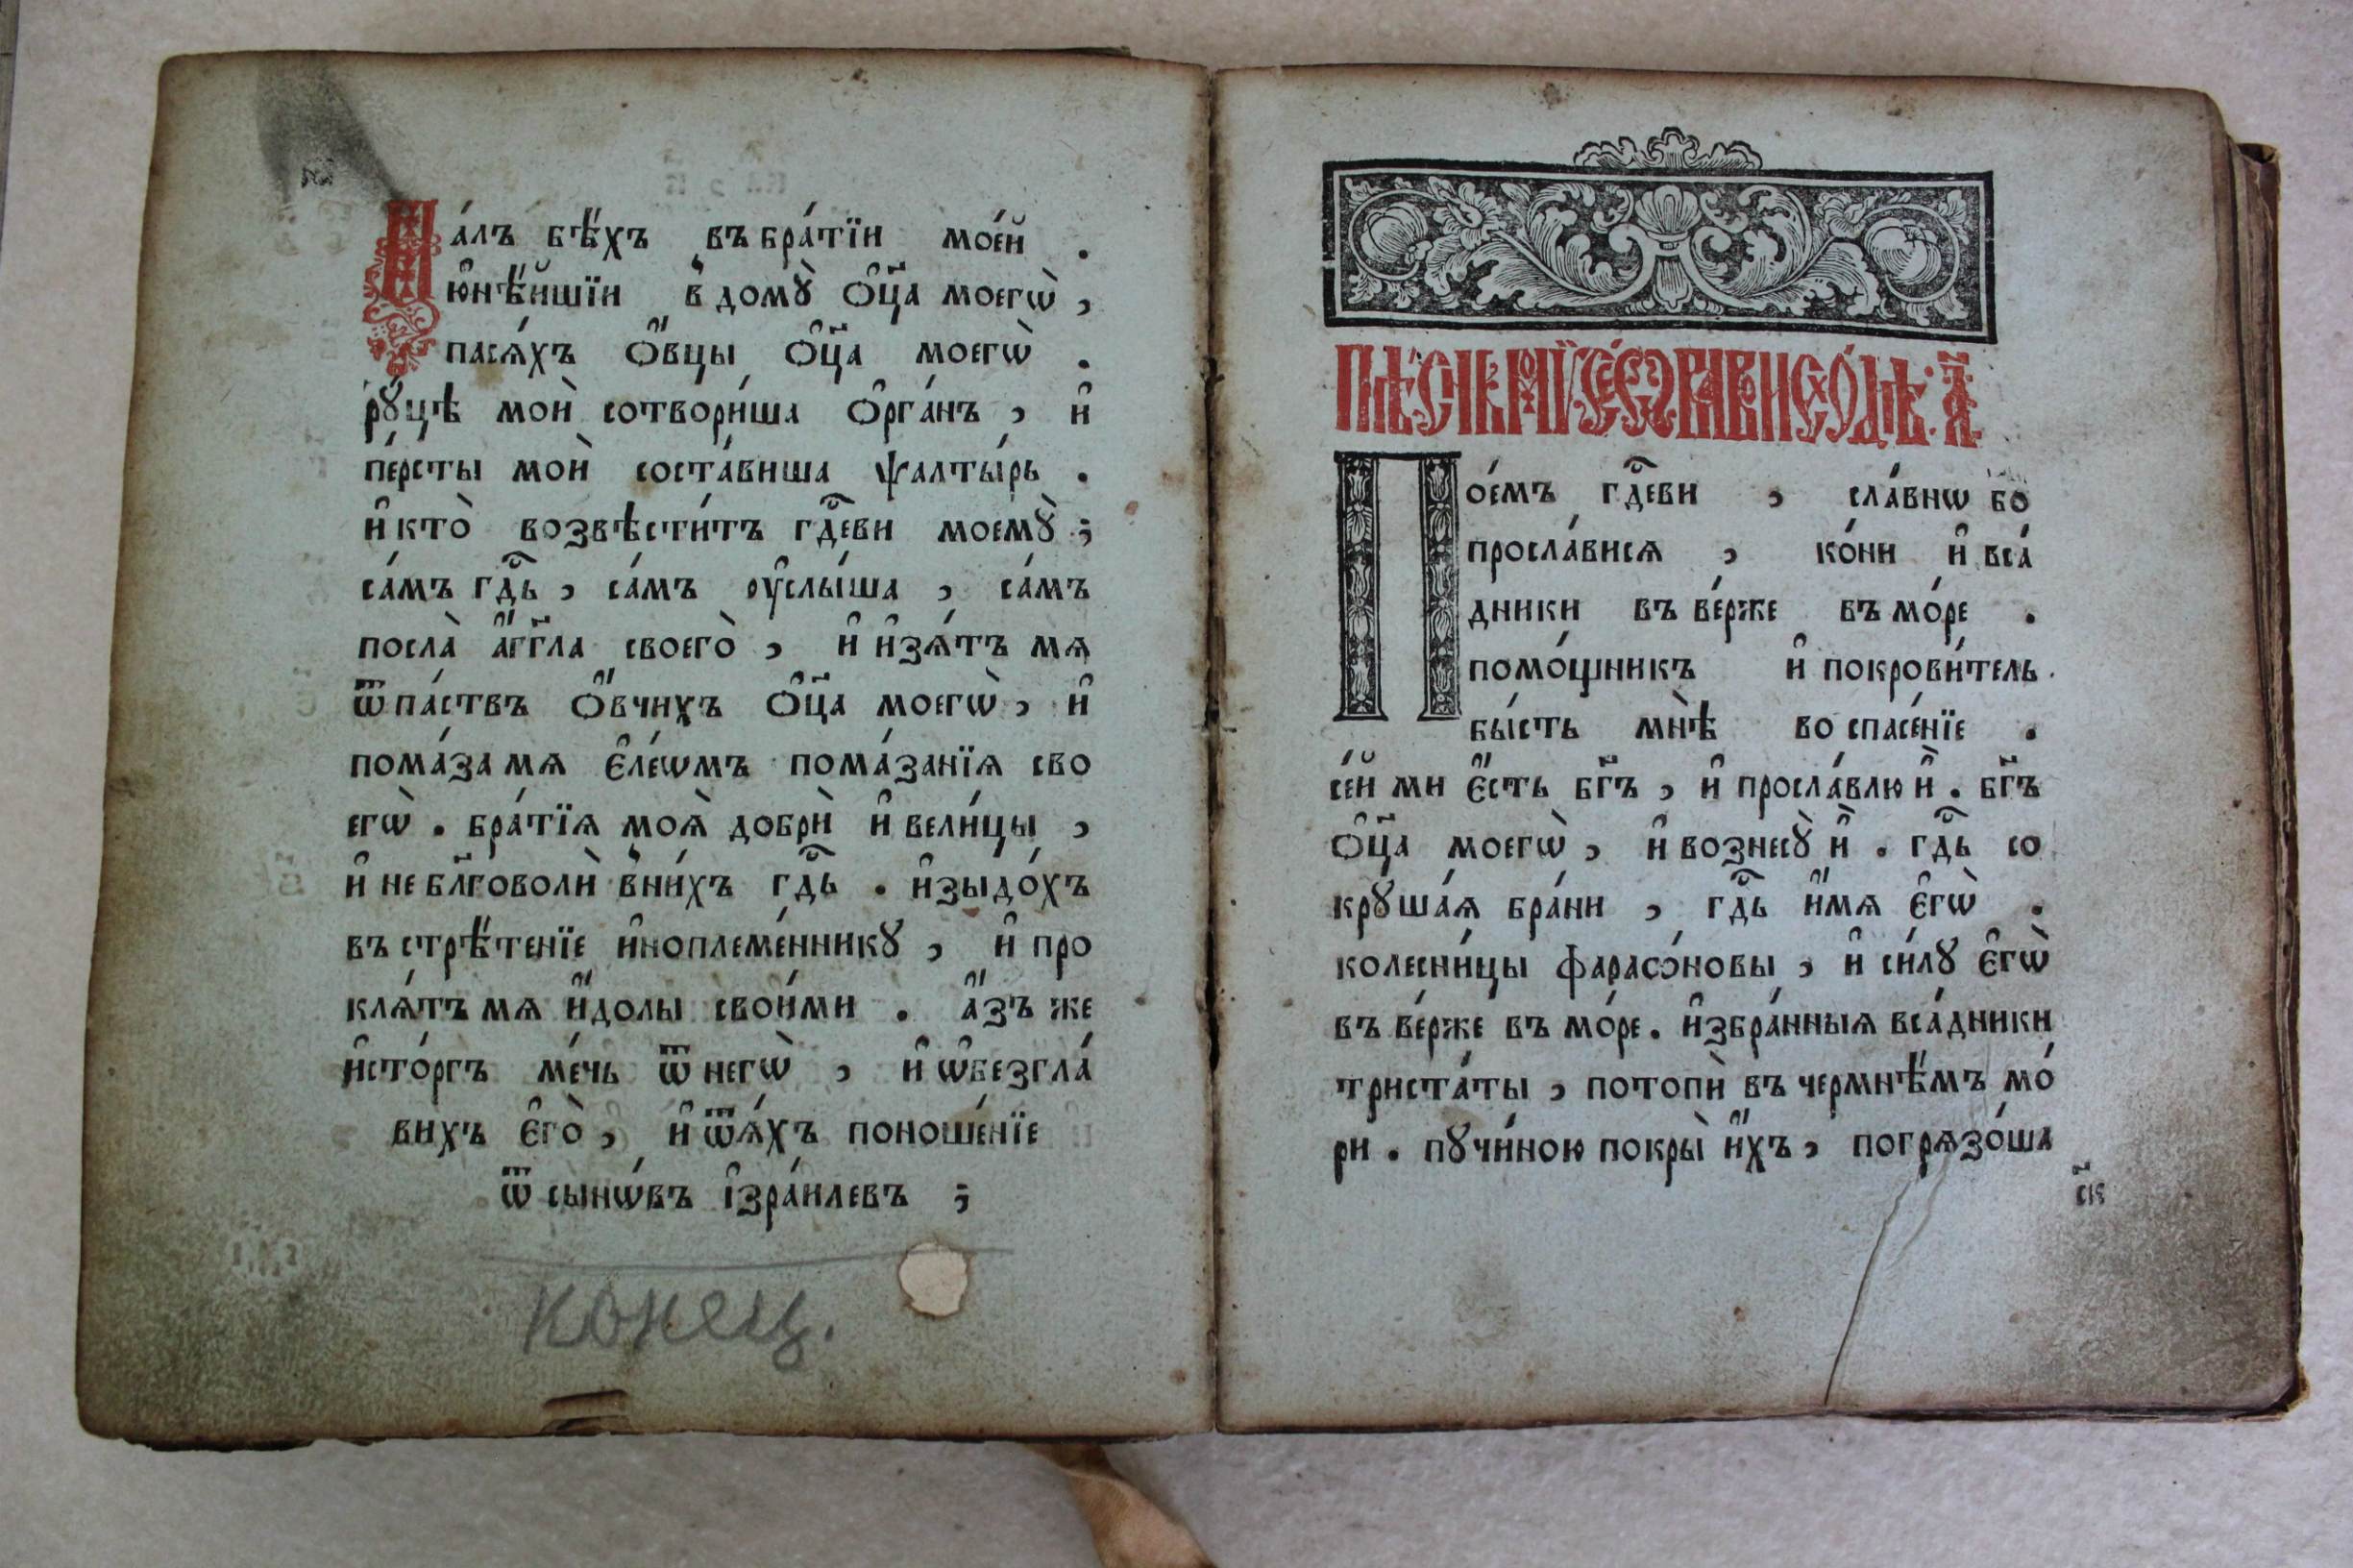 Ма́лъ бѣ́хъ въ бра́тїи мое́й .
и҆ ю҆нѣ́йшїи в̾ дому̀ ѻ҆ц҃а̀ моегѡ̀ ,
пася́хъ ѻ҆́вцы ѻ҆ц҃а̀ моегѡ̀ .
ру́цѣ моѝ сотвори́ша ѻ҆рга́нъ , и҆
пе́рсты моѝ соста́виша ѱалты́рь .
и҆ кто̀ возвѣсти́тъ гдⷭ҇еви моему̀ ;
са́мъ гдⷭ҇ь , са́мъ оу҆слы́ша , са́мъ
посла̀ а҆́гг҃ла своего̀ , и҆ и҆зѧ́тъ мѧ
ѿ па́ствъ ѻ҆́вчихъ ѻ҆ц҃а̀ моегѡ̀ , и҆
пома́за мѧ є҆ле́ѡмъ пома́занїѧ сво
егѡ̀ . бра́тїѧ моѧ̀ добрѝ и҆ вели́цы ,
и҆ не бл҃говолѝ в̾ ни́хъ гдⷭ҇ь . и҆зыдо́хъ
въ стрѣ́тенїе и҆ноплеме́ннику , и҆ про
клѧ́тъ мѧ и҆́долы свои́ми . а҆́зъ же
и҆сто́ргъ ме́чь ѿ негѡ̀ , и҆ ѡ҆безгла́
вихъ є҆го̀ , и҆ ѿѧ́хъ поноше́нїе
ѿ сынѡ́въ і҆зра́илевъ ;
конец.
ПѢ́СНЬ МѠИСЕ́ОВА В ИСХО́ДѢ . а҃
Пое́мъ гдⷭ҇еви , сла́внѡ бо
просла́висѧ , ко́ни и҆ вса́
дники въ ве́рже въ мо́ре .
помо́щникъ и҆ покрови́тель .
бы́сть мнѣ̀ во спасе́нїе .
се́й ми є҆́сть бг҃ъ , и҆ просла́влю и҆̀ . бг҃ъ
ѻ҆ц҃а̀ моегѡ̀ , и҆ вознесу̀ и҆̀ . гдⷭ҇ь со
круша́ѧ бра́ни , гдⷭ҇ь и҆́мѧ є҆гѡ̀ .
колесни́цы фараѻ́новы , и҆ си́лу є҆гѡ̀
въ ве́рже въ мо́ре . и҆збра́нныѧ вса́дники
триста́ты , потопѝ въ чермнѣ́мъ мо́
ри . пучи́ною покры̀ и҆́хъ , погрѧзо́ша
ск҃